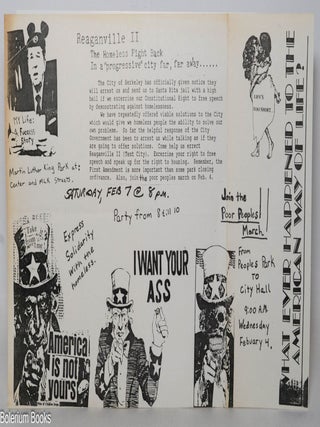 Reaganville II
The Homeless Fight Back
In a "progressive" city fur, far away......
The City of Berkeley has officially given notice they
will arrest us and send us to Santa Rita jail with a high
bail if we exercise our Constitutional Right to free speech
by demonstrating against homelessness.
We have repeatedly offered viable solutions to the City
which would give we homeless people the ability to solve our
own problem. So far the helpful response of the City
Government has been to arrest us while talking as if they
are going to offer solutions. Come help us erect
Reaganville II (Tent City). Exercise your right to free
speech and speak up for the right to housing. Remember, the
First Amendment is more important than some park closing
ordinance. Also, join the poor peoples march on Feb. 4.
My Life:
A
Success
Story
Martin Luther King Park at:
Center and MLK Streets.
SATURDAY FEB 7 @ 8 pm.
Party from 8 till 10
Express
Solidarity
with the
homeless.
America
is not
yours
I WANT YOUR
ASS
Join the
Poor Peoples!!
March
From
Peoples Park
TO
City Hall
9:00 A.M.
Wednesday
February 4.
WHAT EVER HAPPENED TO THE
AMERICAN WAY OF LIFE?
Bolerium Books